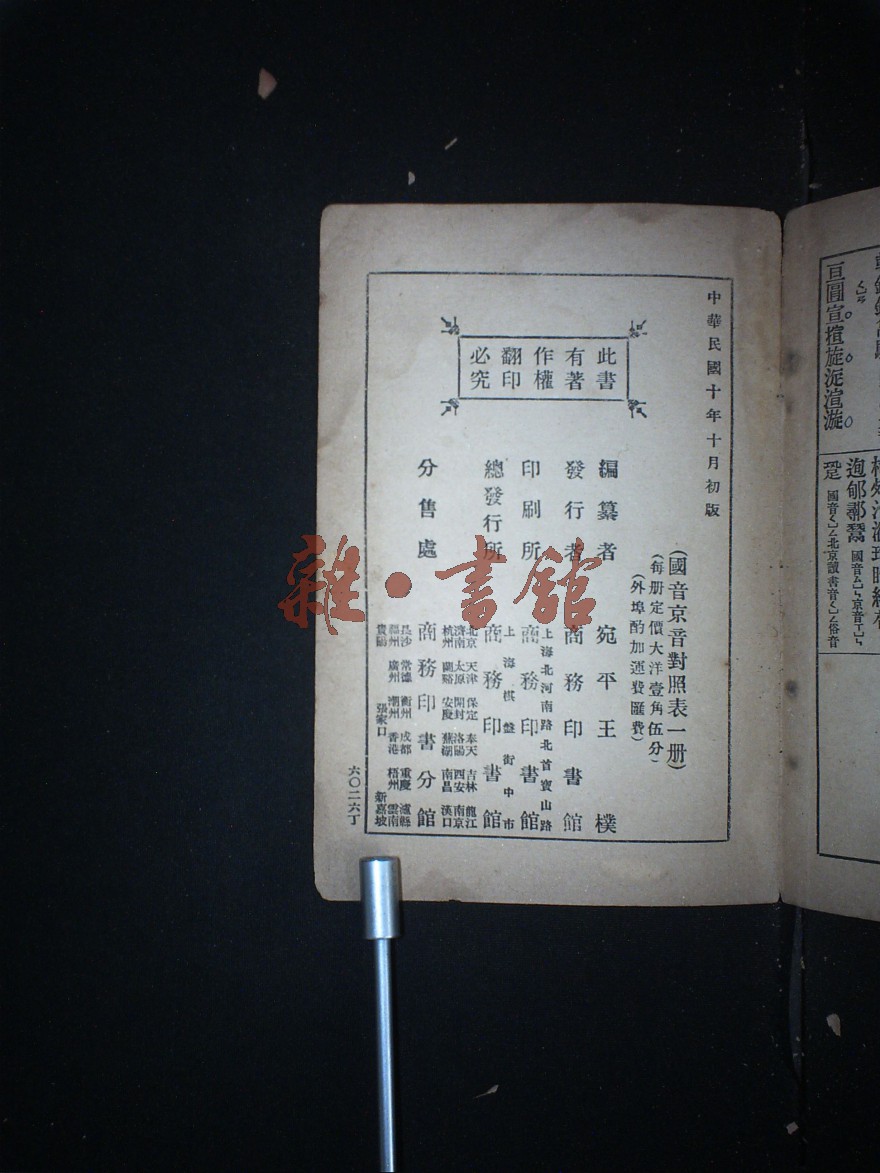 中華民國十年十月初版
(國音京音對照表一册)
(每册定價大洋壹角伍分)
(外埠酌加運費匯費)
此書
有著
作權
翻印
必究
編纂者 宛平王 樸
發行者 商務印書館
上海北河南路北首寶山路
印刷所 商務印書館
上海棋盤街中市
總發行所 商務印書館
分售處 商務印書分館
北京 天津 保定 奉天 吉林 龍江
濟南 太原 開封 洛陽 西安 南京
杭州 蘭谿 安慶 蕪湖 南昌 漢口
長沙 常德 衡州 成都 重慶 瀘縣
福州 廣州 潮州 香港 梧州 雲南
貴陽 張家口 新嘉坡
六〇二六丁
雜·書館
亘圓宣揎旋㳬渲漩
迿郇鄩鷻 國音ㄙㄩㄣ京音ㄒㄩㄣ
國音ㄑㄩㄥ北京讀書音ㄑㄩㄥ俗音